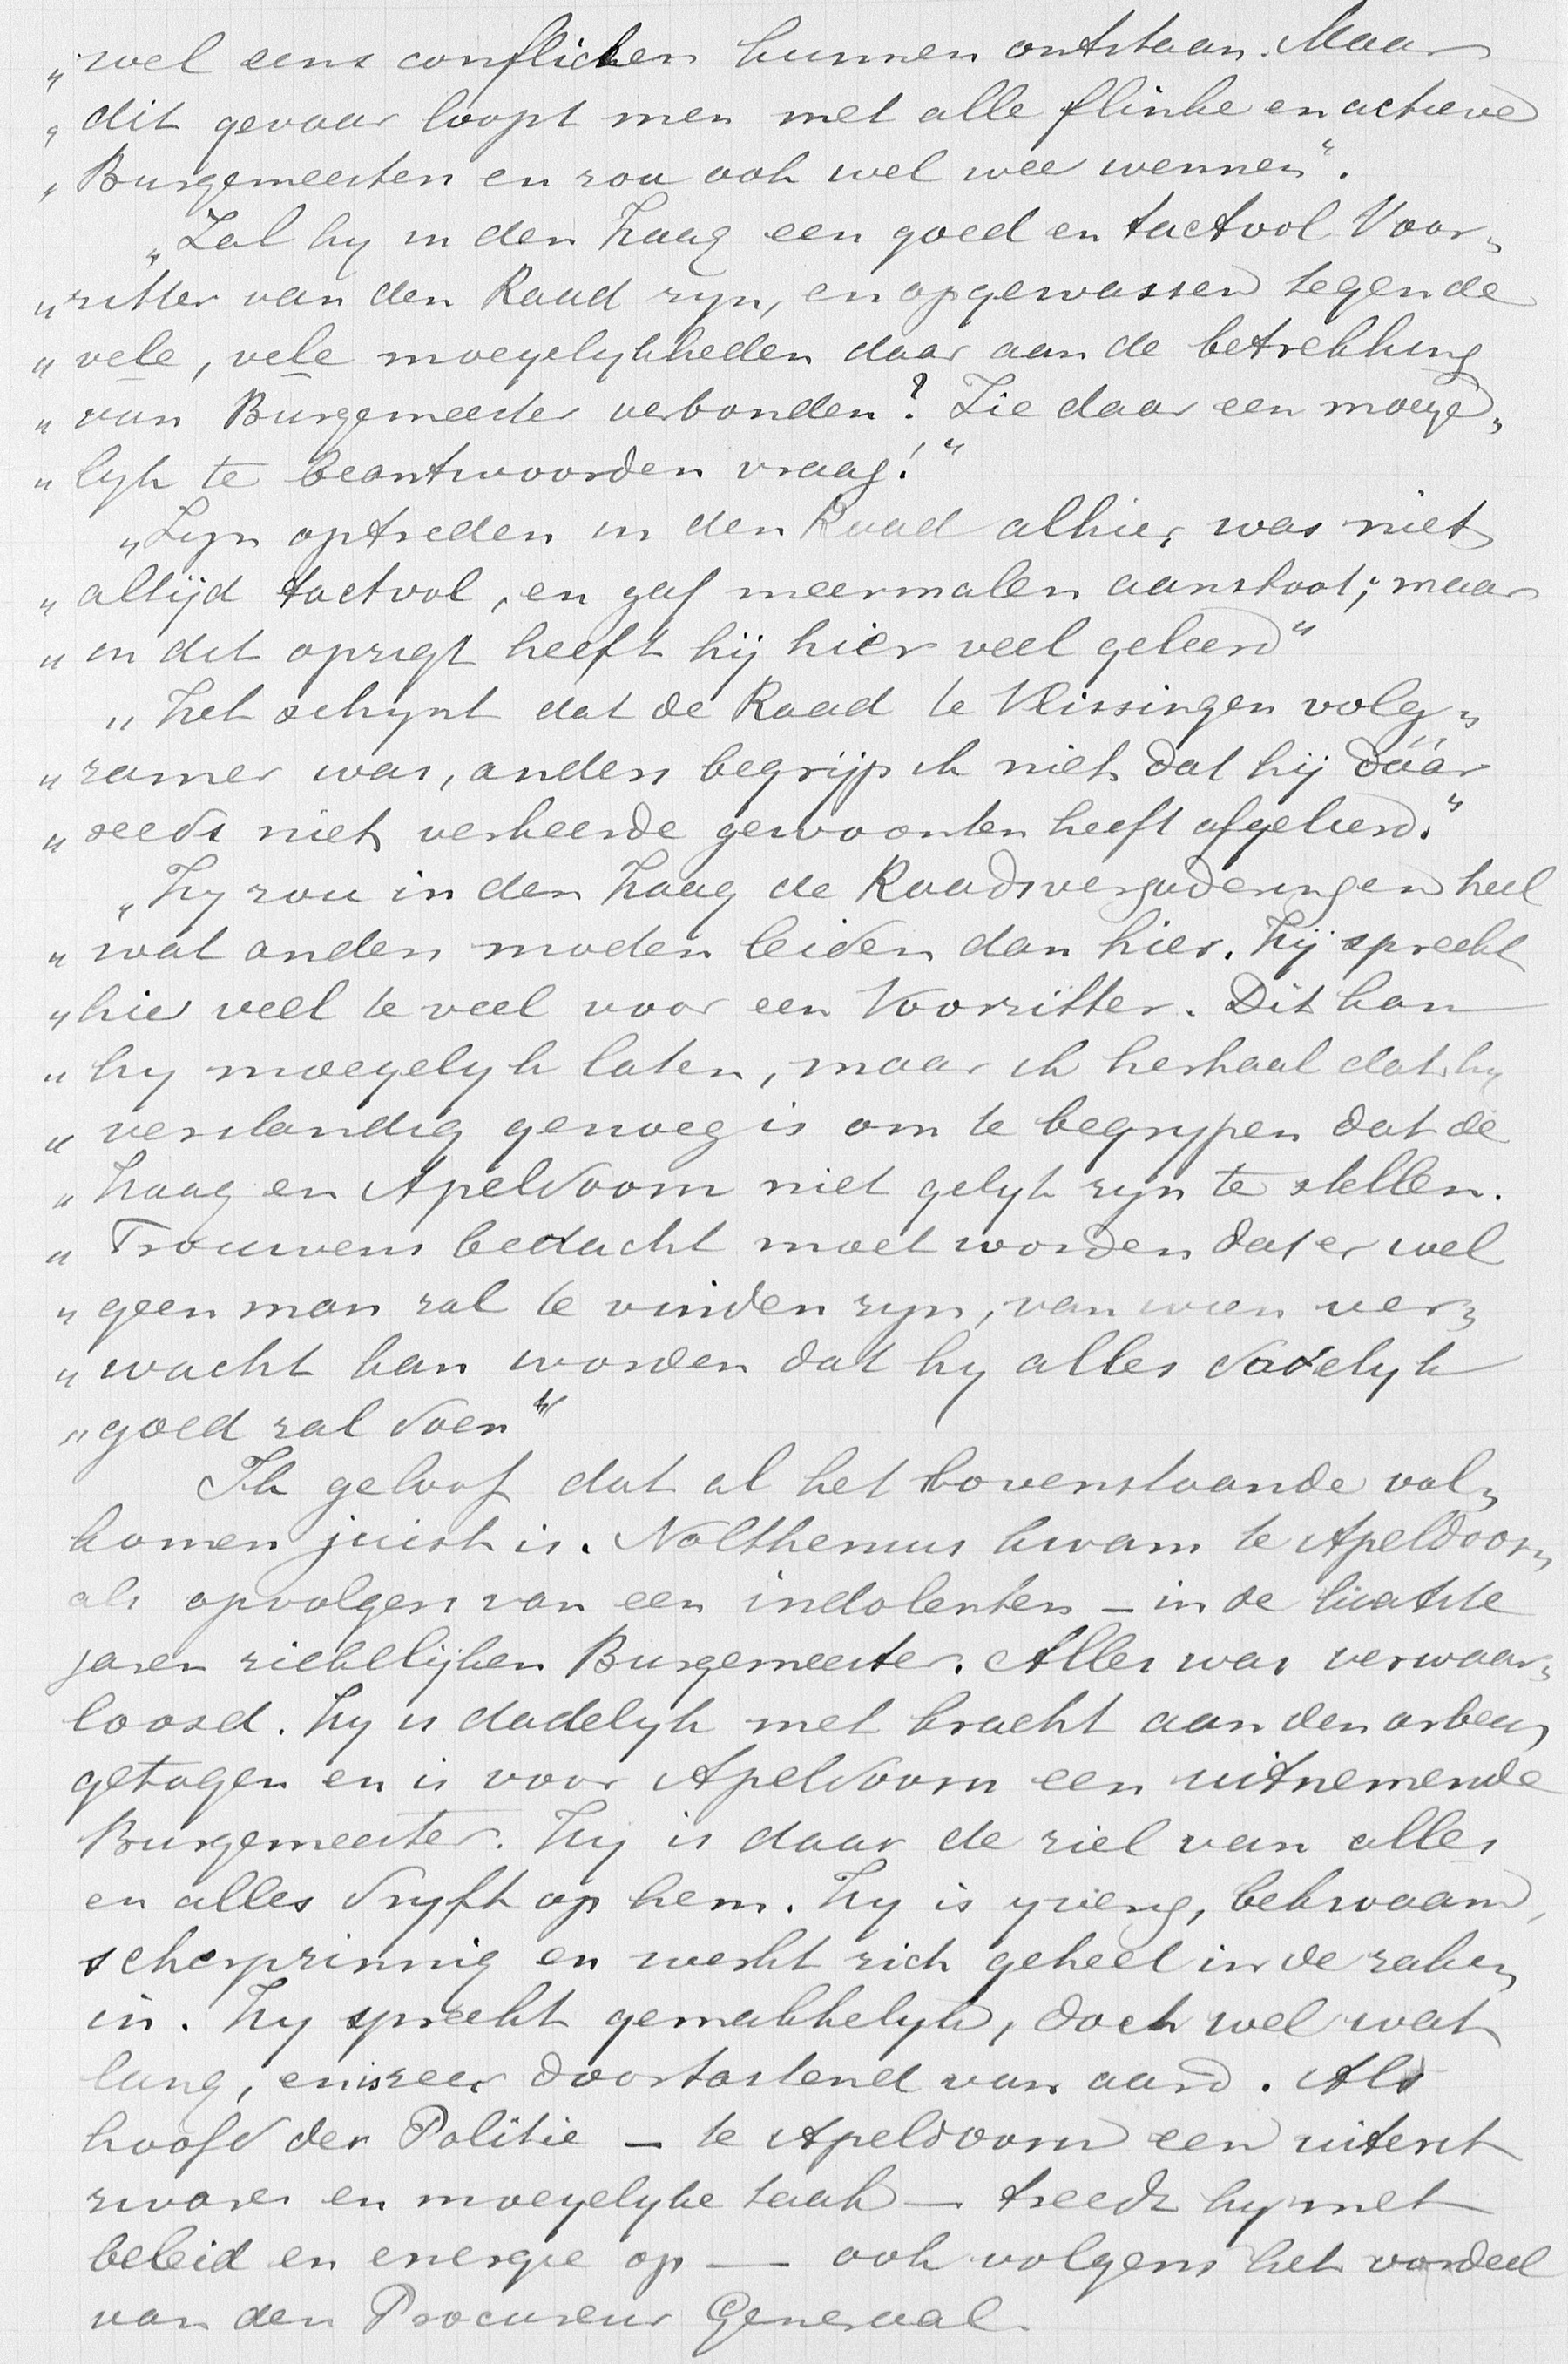 „wel eens conflicten kunnen ontstaan. Maar
„dit gevaar loopt men met alle flinke en actieve
„Burgemeesters en zou ook wel weer wennen“.
„Zal hy in den Haag een goed en tactvol Voor„
„zitter van den Raad zyn, en opgewassen tegen de
„vele, vele moeyelykheden daar aan de betrekking
„van Burgemeester verbonden? Zie daar een moeye„
„lyk te beantwoorden vraag!“
„Zyn optreden in den Raad alhier was niet
„altijd tactvol, en gaf meermalen aanstoot; maar
„in dit opzigt heeft hij hier veel geleerd“
„Het schynt dat de Raad te Vlissingen volg„
„zamer was, anders begrijp ik niet dat hij dáár
„reeds niet verkeerde gewoonten heeft afgeleerd.“
„Hy zou in den Haag de Raadsvergaderingen heel
„wat anders moeten leiden dan hier. Hij spreekt
„hier veel te veel voor een Voorzitter. Dit kan
„hy moeyelyk laten, maar ik herhaal dat hy
„verstandig genoeg is om te begrypen dat de
„Haag en Apeldoorn niet gelyk zyn te stellen.
„Trouwens bedacht moet worden dat er wel
„geen man zal te vinden zyn, van wien ver„
„wacht kan worden dat hy alles dadelyk
„goed zal doen“
Ik geloof dat al het bovenstaande vol„
komen juist is. Nolthenius kwam te Apeldoorn
als opvolger van een indolenten – in de laatste
jaren ziekelijken Burgemeester. Alles was verwaar„
loosd. Hy is dadelyk met kracht aan den arbeid
getogen en is voor Apeldoorn een uitnemende
Burgemeester. Hy is daar de ziel van alles
en alles dryft op hem. Hy is yverig, bekwaam,
scherpzinnig en werkt zich geheel in de zaken
in. Hy spreekt gemakkelyk, doch wel wat
lang, en is zeer doortastend van aard. Als
hoofd der Politie – te Apeldoorn een uiterst
zware en moeyelyke taak – treedt hy met
beleid en energie op – ook volgens het oordeel
van den Procureur Generaal.